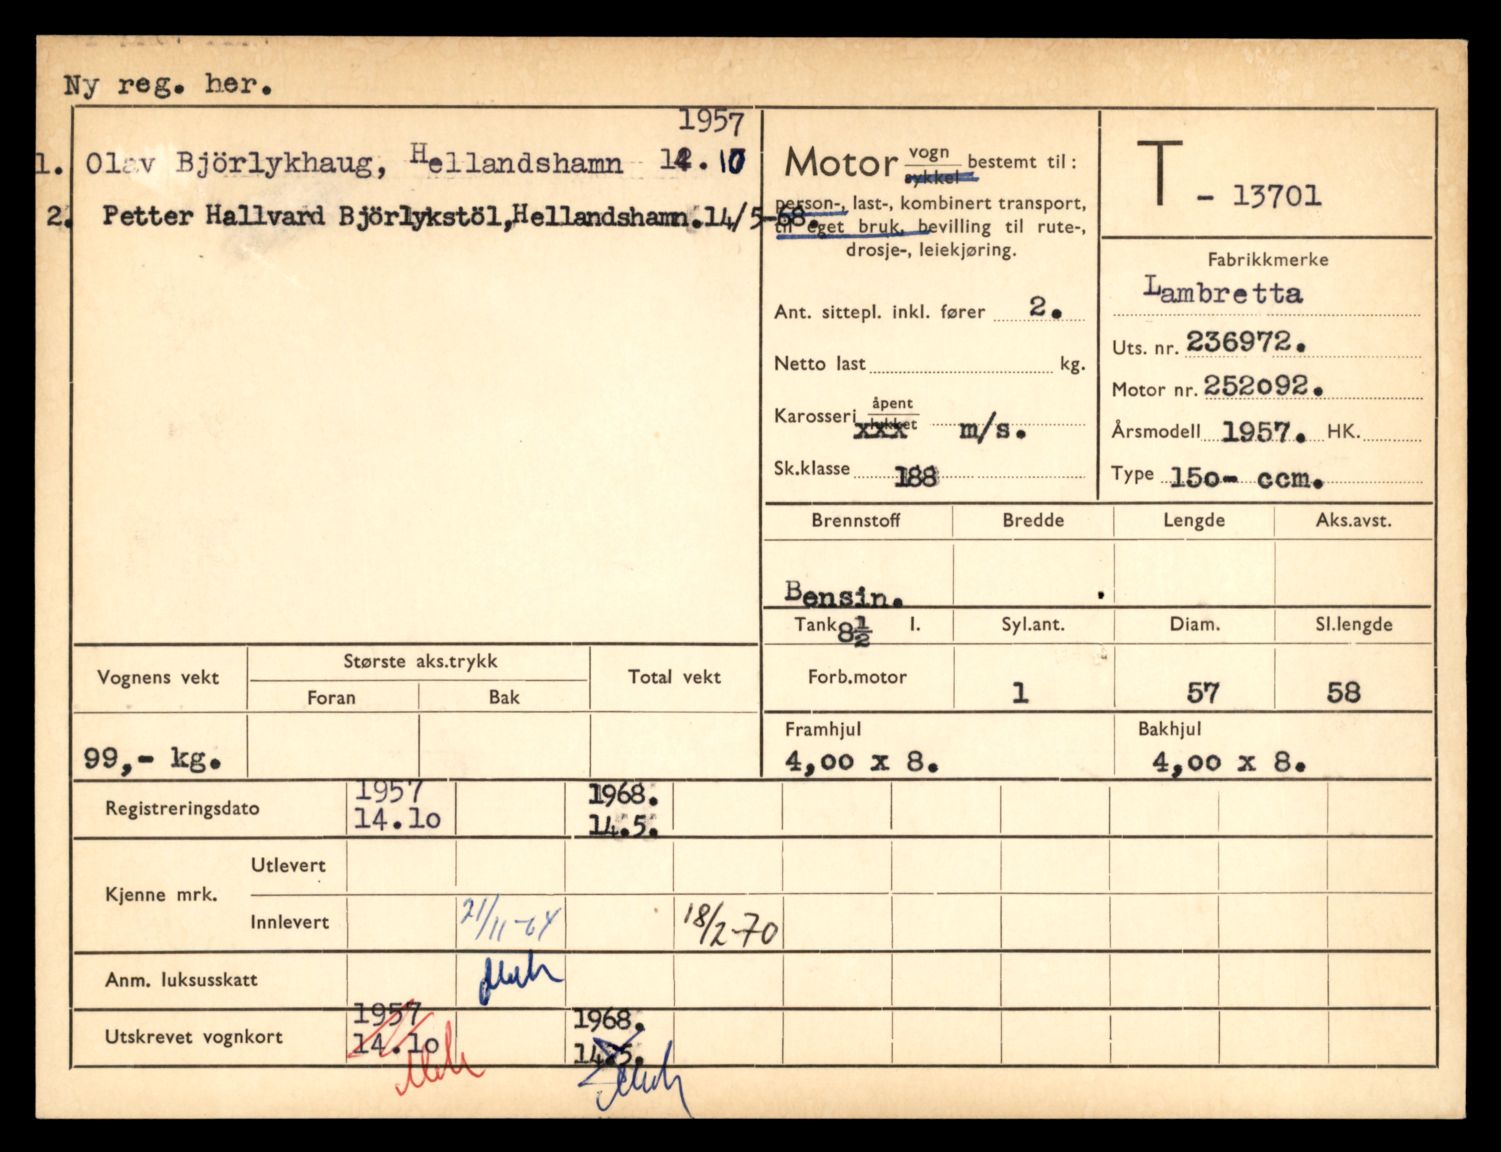 Ny reg. her.
1957
1. Olav Bjørlykhaug, Hellandshamn 14.10
2. Petter Hallvard Bjørlykstöl, Hellandshamn. 14/5-68.
Motor vogn
sykkel bestemt til:
person-, last-, kombinert transport,
til eget bruk, bevilling til rute-,
drosje-, leiekjøring.
Ant. sittepl. inkl. fører 2.
Netto last kg.
Karosseri åpent
lukket xxx m/s.
Sk.klasse 188
T - 13701
Fabrikkmerke
Lambretta
Uts. nr. 236972.
Motor nr. 252092.
Årsmodell 1957. HK.
Type 150- ccm.
Brennstoff Bredde Lengde Aks.avst.
Bensin.
Tank 8½ l. Syl.ant. Diam. Sl.lengde
Forb.motor 1 57 58
Framhjul Bakhjul
4,00 x 8. 4,00 x 8.
Vognens vekt Største aks.trykk Total vekt
Foran Bak
99,- kg.
Registreringsdato 1957 1968.
14.10 14.5.
Kjenne mrk. Utlevert
Innlevert 21/11-64 18/2-70
Anm. luksusskatt
Utskrevet vognkort 1957 1968.
14.10 14.5.